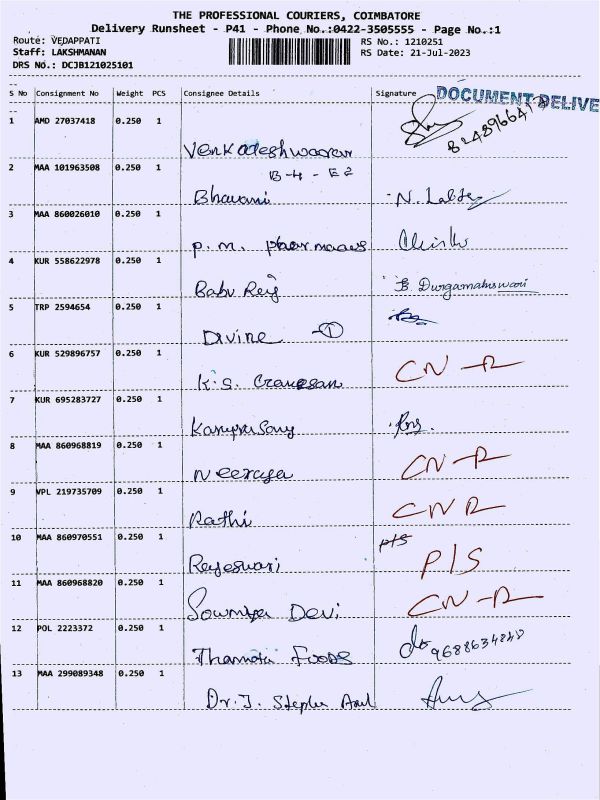 THE PROFESSIONAL COURIERS, COIMBATORE
Delivery Runsheet - P41 - Phone No.:0422-3505555 - Page No.:1
Route: VEDAPPATI
RS No.: 1210251
Staff: LAKSHMANAN
RS Date: 21-Jul-2023
DRS No.: DCJB121025101
S No Consignment No Weight PCS Consignee Details Signature
DOCUMENT DELIVE
1 AMD 27037418 0.250 1
Venkateshwaran
B-4 - E2
2 MAA 101963508 0.250 1
Bhavani
3 MAA 860026010 0.250 1
P. M. Pharmaaws
4 KUR 558622978 0.250 1
Babu Rej B. Durgamaheswari
5 TRP 2594654 0.250 1
Divine 1
6 KUR 529896757 0.250 1
K.S. CN-R
7 KUR 695283727 0.250 1
8 MAA 860968819 0.250 1
Neeraja CN-R
9 VPL 219735709 0.250 1
Rathi CNR
10 MAA 860970551 0.250 1 P/S
Rajeswari P/S
11 MAA 860968820 0.250 1
Sowmya Devi CN-R
12 POL 2223372 0.250 1
Foods 9688634848
13 MAA 299089348 0.250 1
Dr. J. Stephen Arul